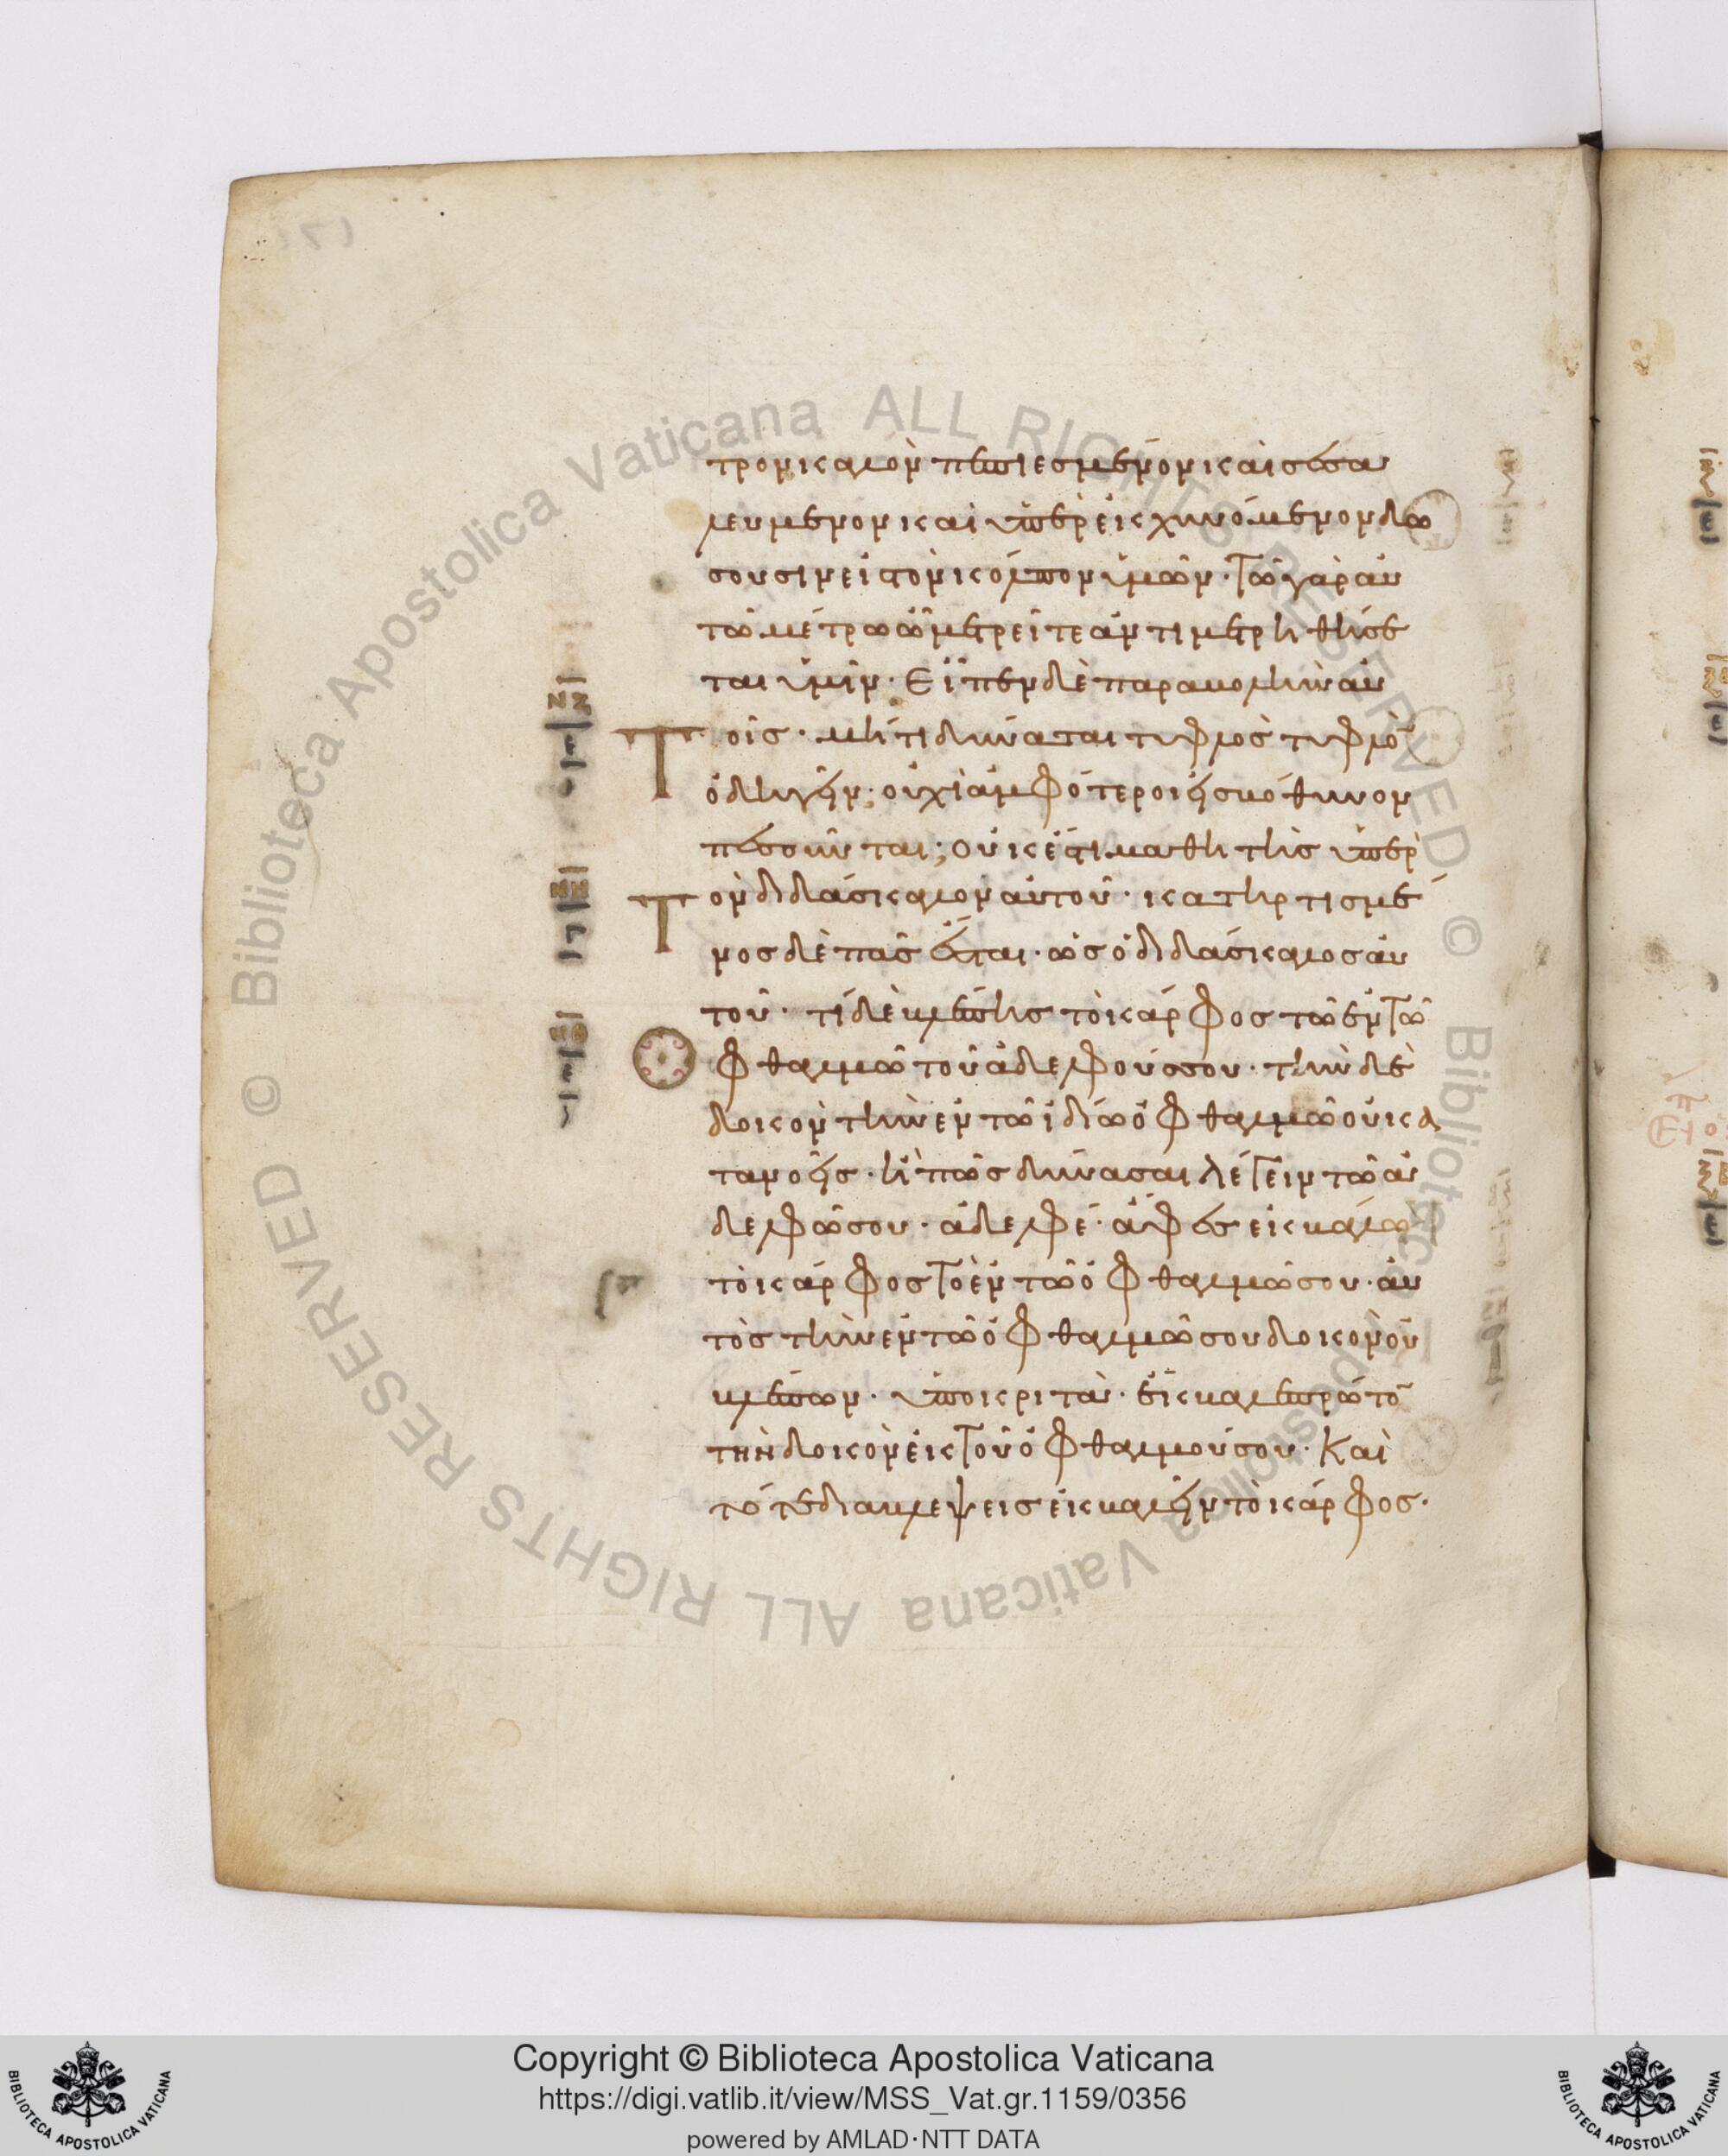 τρον καλὸν πεπιεσμένον καὶ σεσα
λευμενον καὶ ὑπερεκχυνόμενον δω
σουσιν εἰς τὸν κόλπον ὑμῶν· Τῶ γὰρ αυ
τῶ μέτρω ὧ μετρεῖτε ἀντιμετρηθήσε
ται ὑμῖν· Εἶπεν δὲ παραβολὴν αυ
Τοῖς· μήτι δύναται τυφλὸς τυφλὸ
ὁδηγεῖν; οὐχὶ ἀμφότεροι εἰς βόθυνον
πεσοῦνται; οὐκ ἔστι μαθητὴς ὑπὲρ
Τὸν διδάσκαλον αὐτοῦ· κατηρτισμέ
νος δὲ πᾶς ἔσται· ὡς ὁ διδάσκαλος αὐ
τοῦ· τί δὲ βλέπεις τὸ κάρφος τὸ ἐν Τῶ
Ὀφθαλμῶ τοῦ ἀδελφοῦ σου· τὴν δὲ
δοκὸν τὴν ἐν τῶ ἰδίω ὀφθαλμῶ οὐ κα
τανοεῖς· ἢ πῶς δύνασαι λέγειν τῶ ἀ
δελφῶ σου· ἀδελφέ· ἄφες ἐκβάλω
τὸ κάρφος Τὸ ἐν τῶ ὀφθαλμῶ σου· αὐ
τὸς τὴν ἐν τῶ ὀφθαλμῶ σου δοκὸν οὐ
βλέπων· ὑποκριτὰ· ἔκβαλε πρῶτο
τὴν δοκὸν ἐκ Τοῦ ὀφθαλμοῦ σου· Καὶ
τότε διαβλεψεις ἐκβαλεῖν τὸ κάρφος·
Copyright © Biblioteca Apostolica Vaticana
https://digi.vatlib.it/view/MSS_Vat.gr.1159/0356
powered by AMLAD·NTT DATA
BIBLIOTECA APOSTOLICA VATICANA
BIBLIOTECA APOSTOLICA VATICANA
© Biblioteca Apostolica Vaticana ALL RIGHTS RESERVED
© Biblioteca Apostolica Vaticana ALL RIGHTS RESERVED